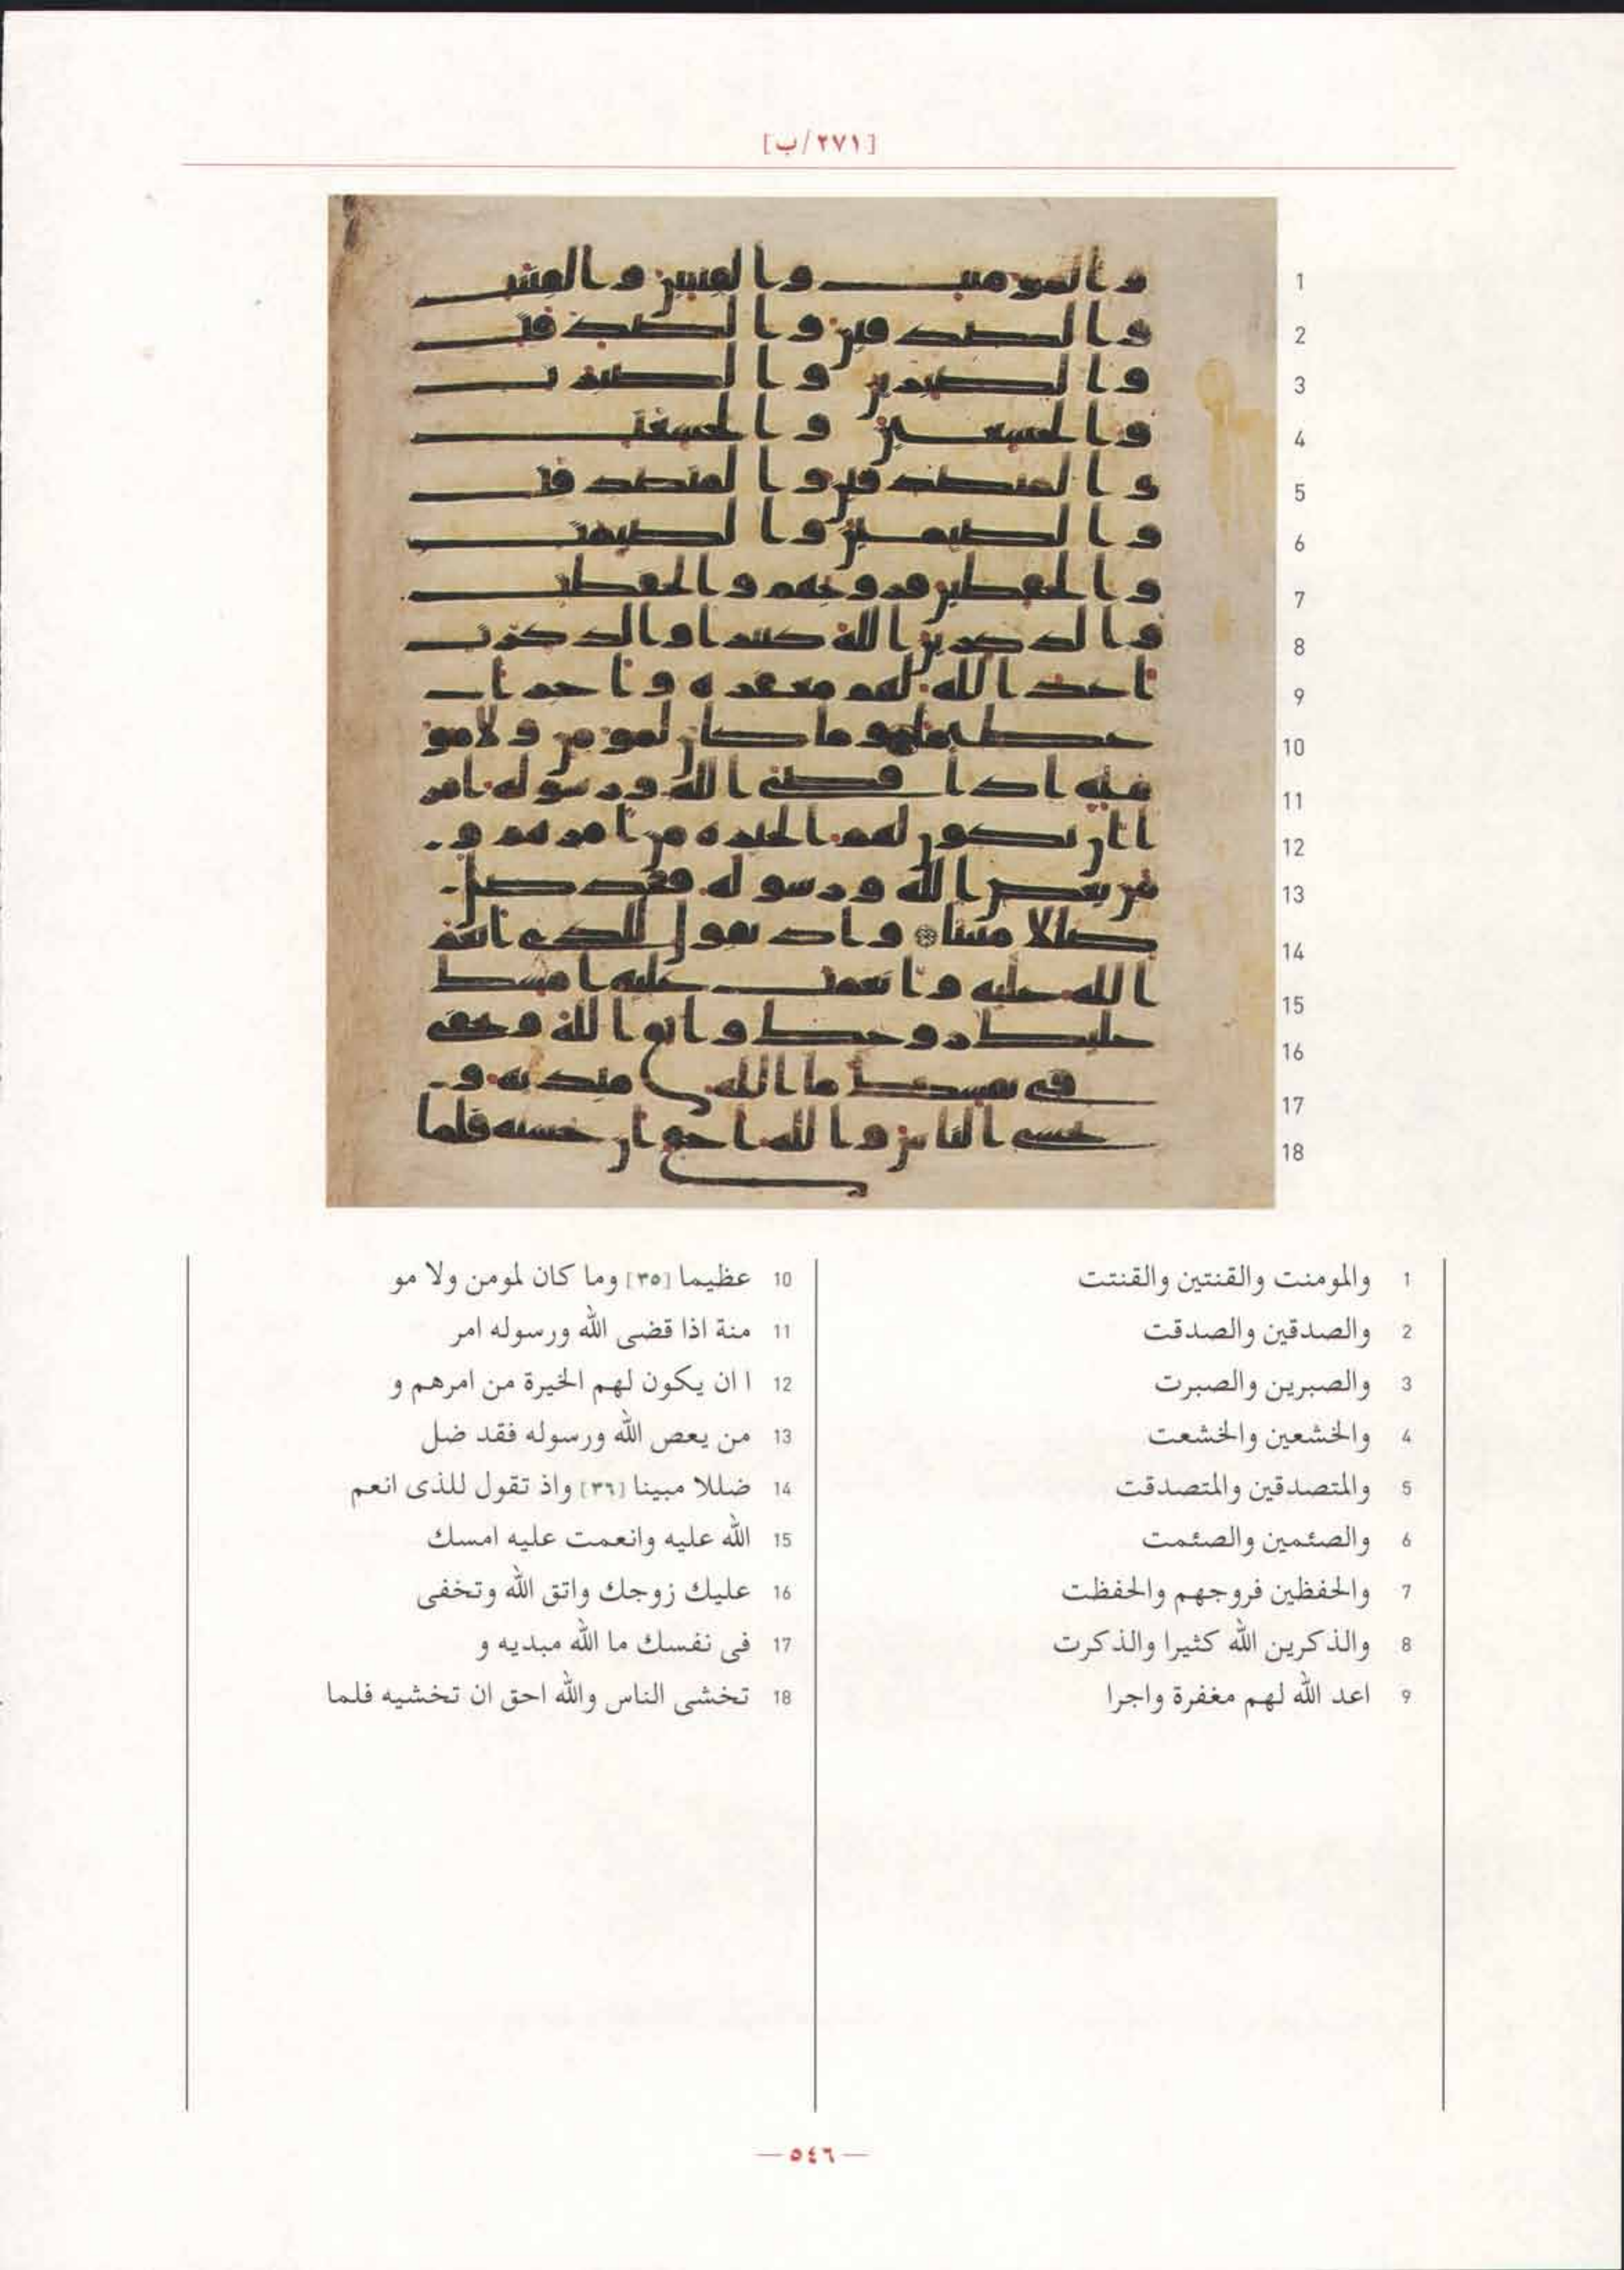 [٢٧١/ب]
1 والمومنت والقنتين والقنتت
2 والصدقين والصدقت
3 والصبرين والصبرت
4 والخشعين والخشعت
5 والمتصدقين والمتصدقت
6 والصئمين والصئمت
7 والحفظين فروجهم والحفظت
8 والذكرين الله كثيرا والذكرت
9 اعد الله لهم مغفرة واجرا
10 عظيما [٣٥] وما كان لمومن ولا مو
11 منة اذا قضى الله ورسوله امر
12 ا ان يكون لهم الخيرة من امرهم و
13 من يعص الله ورسوله فقد ضل
14 ضللا مبينا [٣٦] واذ تقول للذى انعم
15 الله عليه وانعمت عليه امسك
16 عليك زوجك واتق الله وتخفى
17 فى نفسك ما الله مبديه و
18 تخشى الناس والله احق ان تخشيه فلما
— ٥٤٦ —